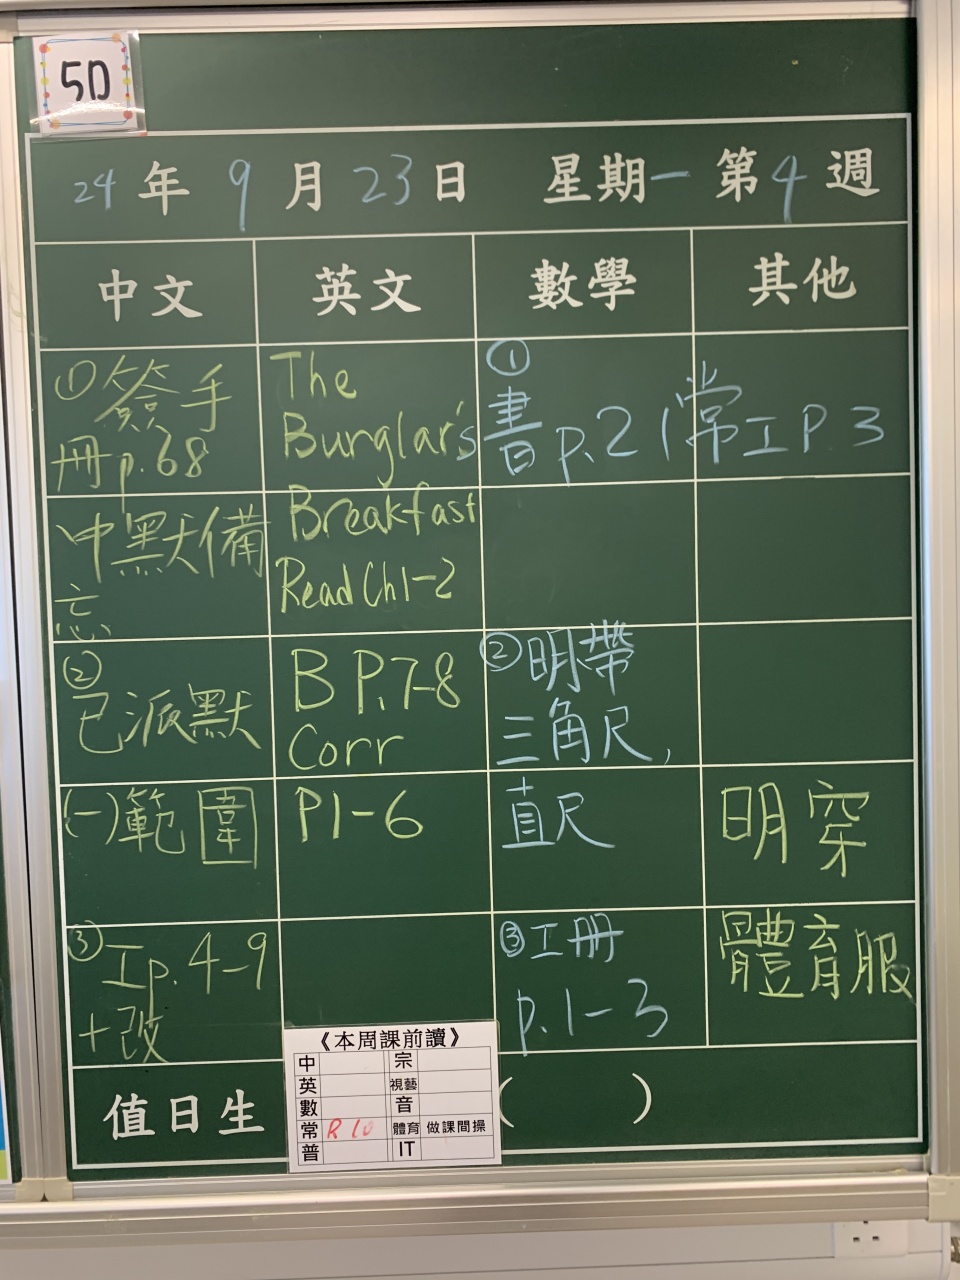 5D
24年9月23日 星期一 第4週
中文 英文 數學 其他
①簽手
冊p.68
中默備
忘
②
已派默
(一)範圍
③工p.4-9
+改
The
Burglar's
Breakfast
Read Ch1-2
B P.7-8
Corr
P1-6
①
書p.21
②明帶
三角尺,
直尺
③工冊
p.1-3
常工P3
明穿
體育服
值日生 ( )
《本周課前讀》
中 宗
英 視藝
數 音
常 R10 體育 做課間操
普 IT